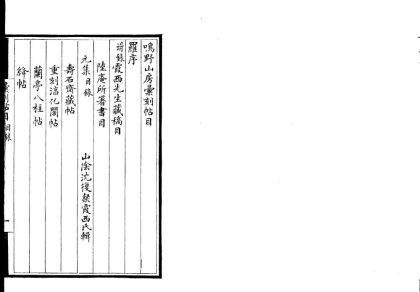 鳴野山房彙刻帖目
羅序
舊錄霞西先生藏稿目
陸庵所著書目
元集目錄
山陰沈復粲霞西氏輯
壽石齋藏帖
重刻淳化閣帖
蘭亭八柱帖
絳帖
彙刻帖目 目錄
一